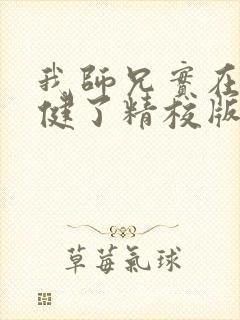 我師兄實在
健了精校版
草莓氣球